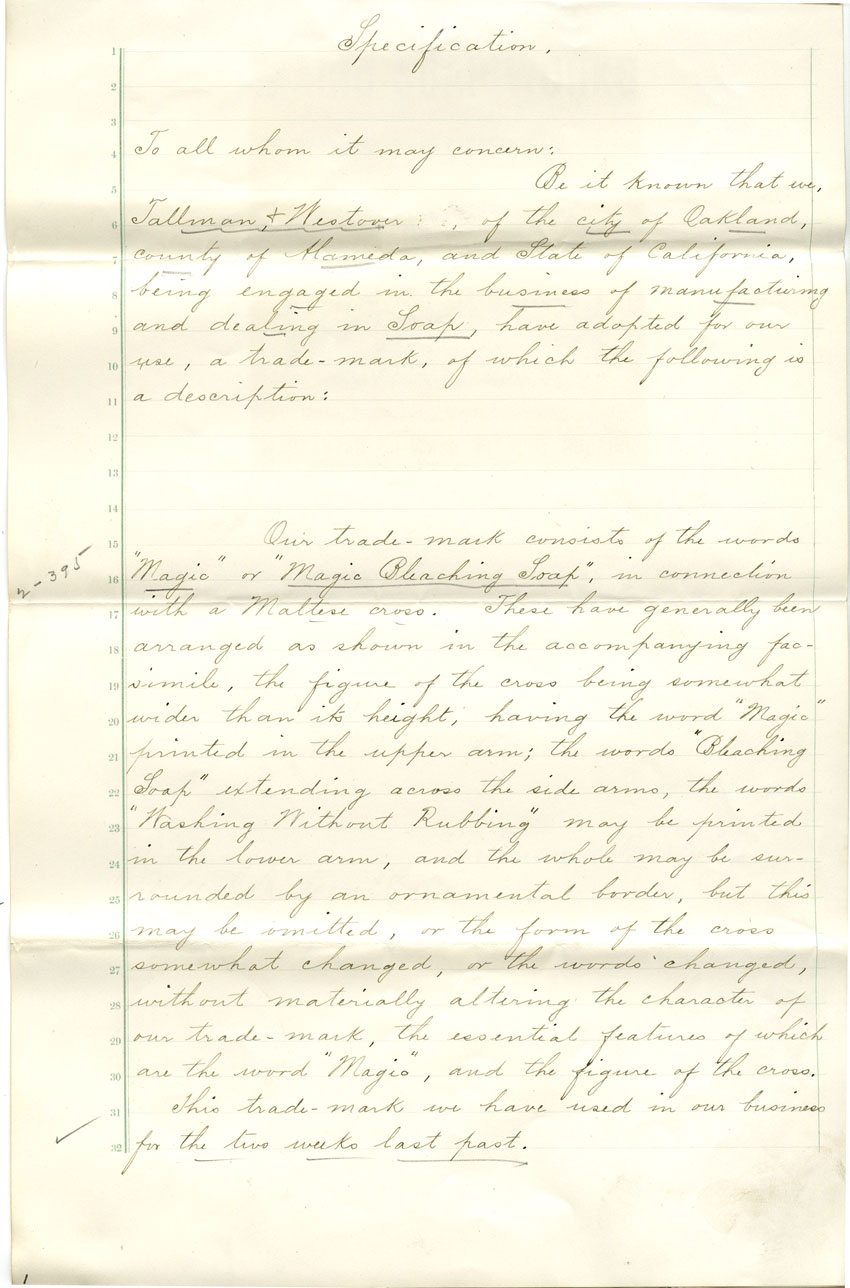 Specification.
1
2
3
To all whom it may concern:
4
Be it known that we,
5
Tallman & Westover , of the city of Oakland,
6
county of Alameda, and State of California,
7
being engaged in the business of manufacturing
8
and dealing in Soap, have adopted for our
9
use, a trade-mark, of which the following is
10
a description:
11
12
13
14
Our trade-mark consists of the words
15
2-395
"Magic" or "Magic Bleaching Soap", in connection
16
with a Maltese cross. These have generally been
17
arranged as shown in the accompanying fac-
18
simile, the figure of the cross being somewhat
19
wider than its height, having the word "Magic"
20
printed in the upper arm; the words "Bleaching
21
Soap" extending across the side arms, the words
22
"Washing Without Rubbing" may be printed
23
in the lower arm, and the whole may be sur-
24
rounded by an ornamental border, but this
25
may be omitted, or the form of the cross
26
somewhat changed, or the words changed,
27
without materially altering the character of
28
our trade-mark, the essential features of which
29
are the word "Magic", and the figure of the cross.
30
This trade-mark we have used in our business
31
for the two weeks last past.
32